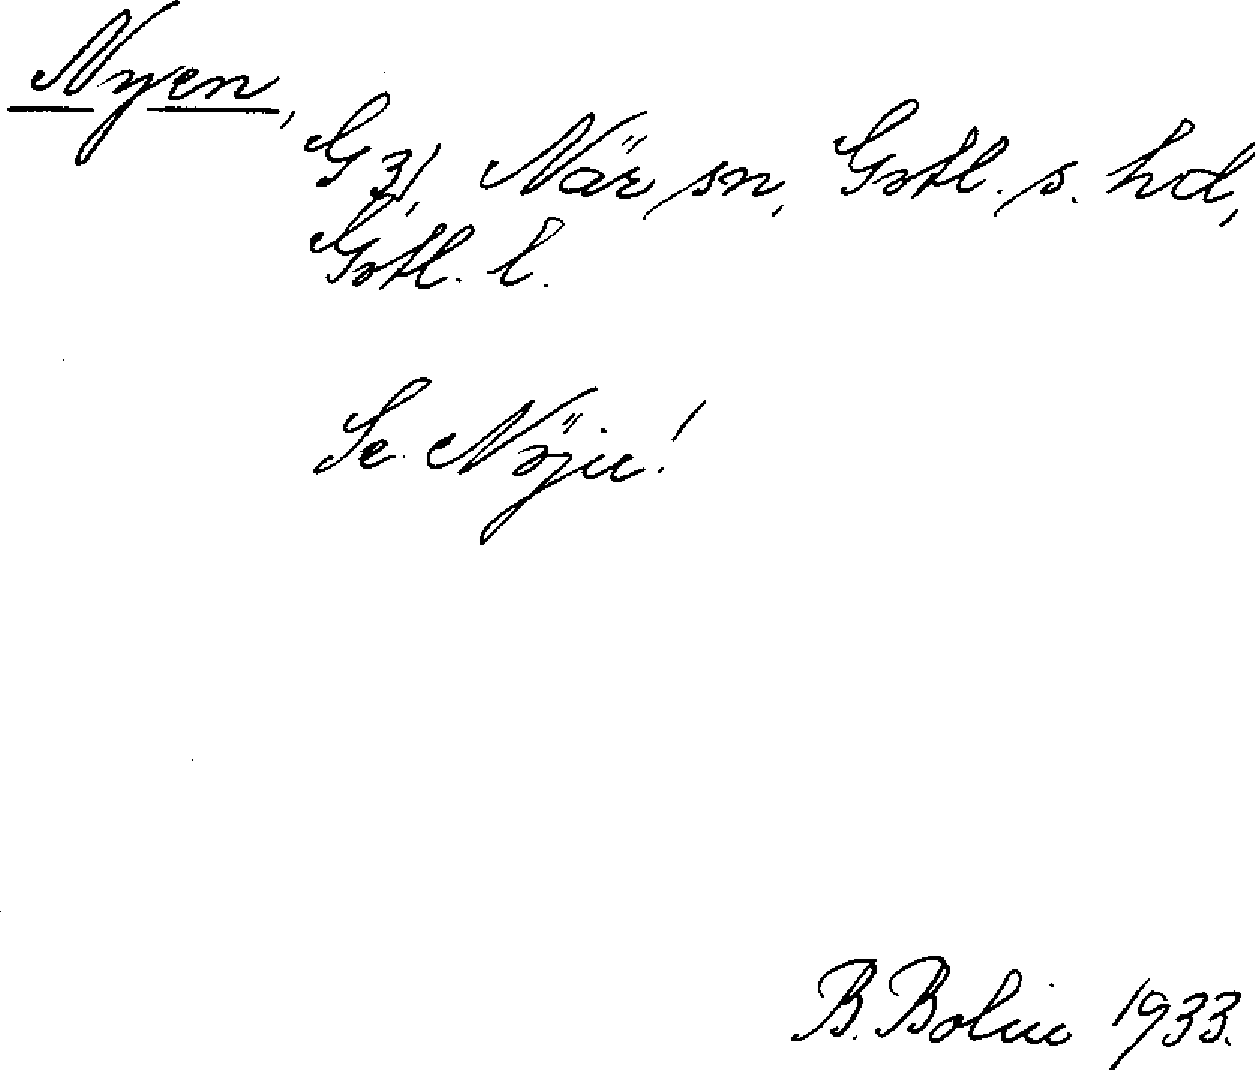 Nyen,
G 31, När sn, Gotl. s. hd,
Gotl. l.
Se Nöju!
B. Bolin 1933.